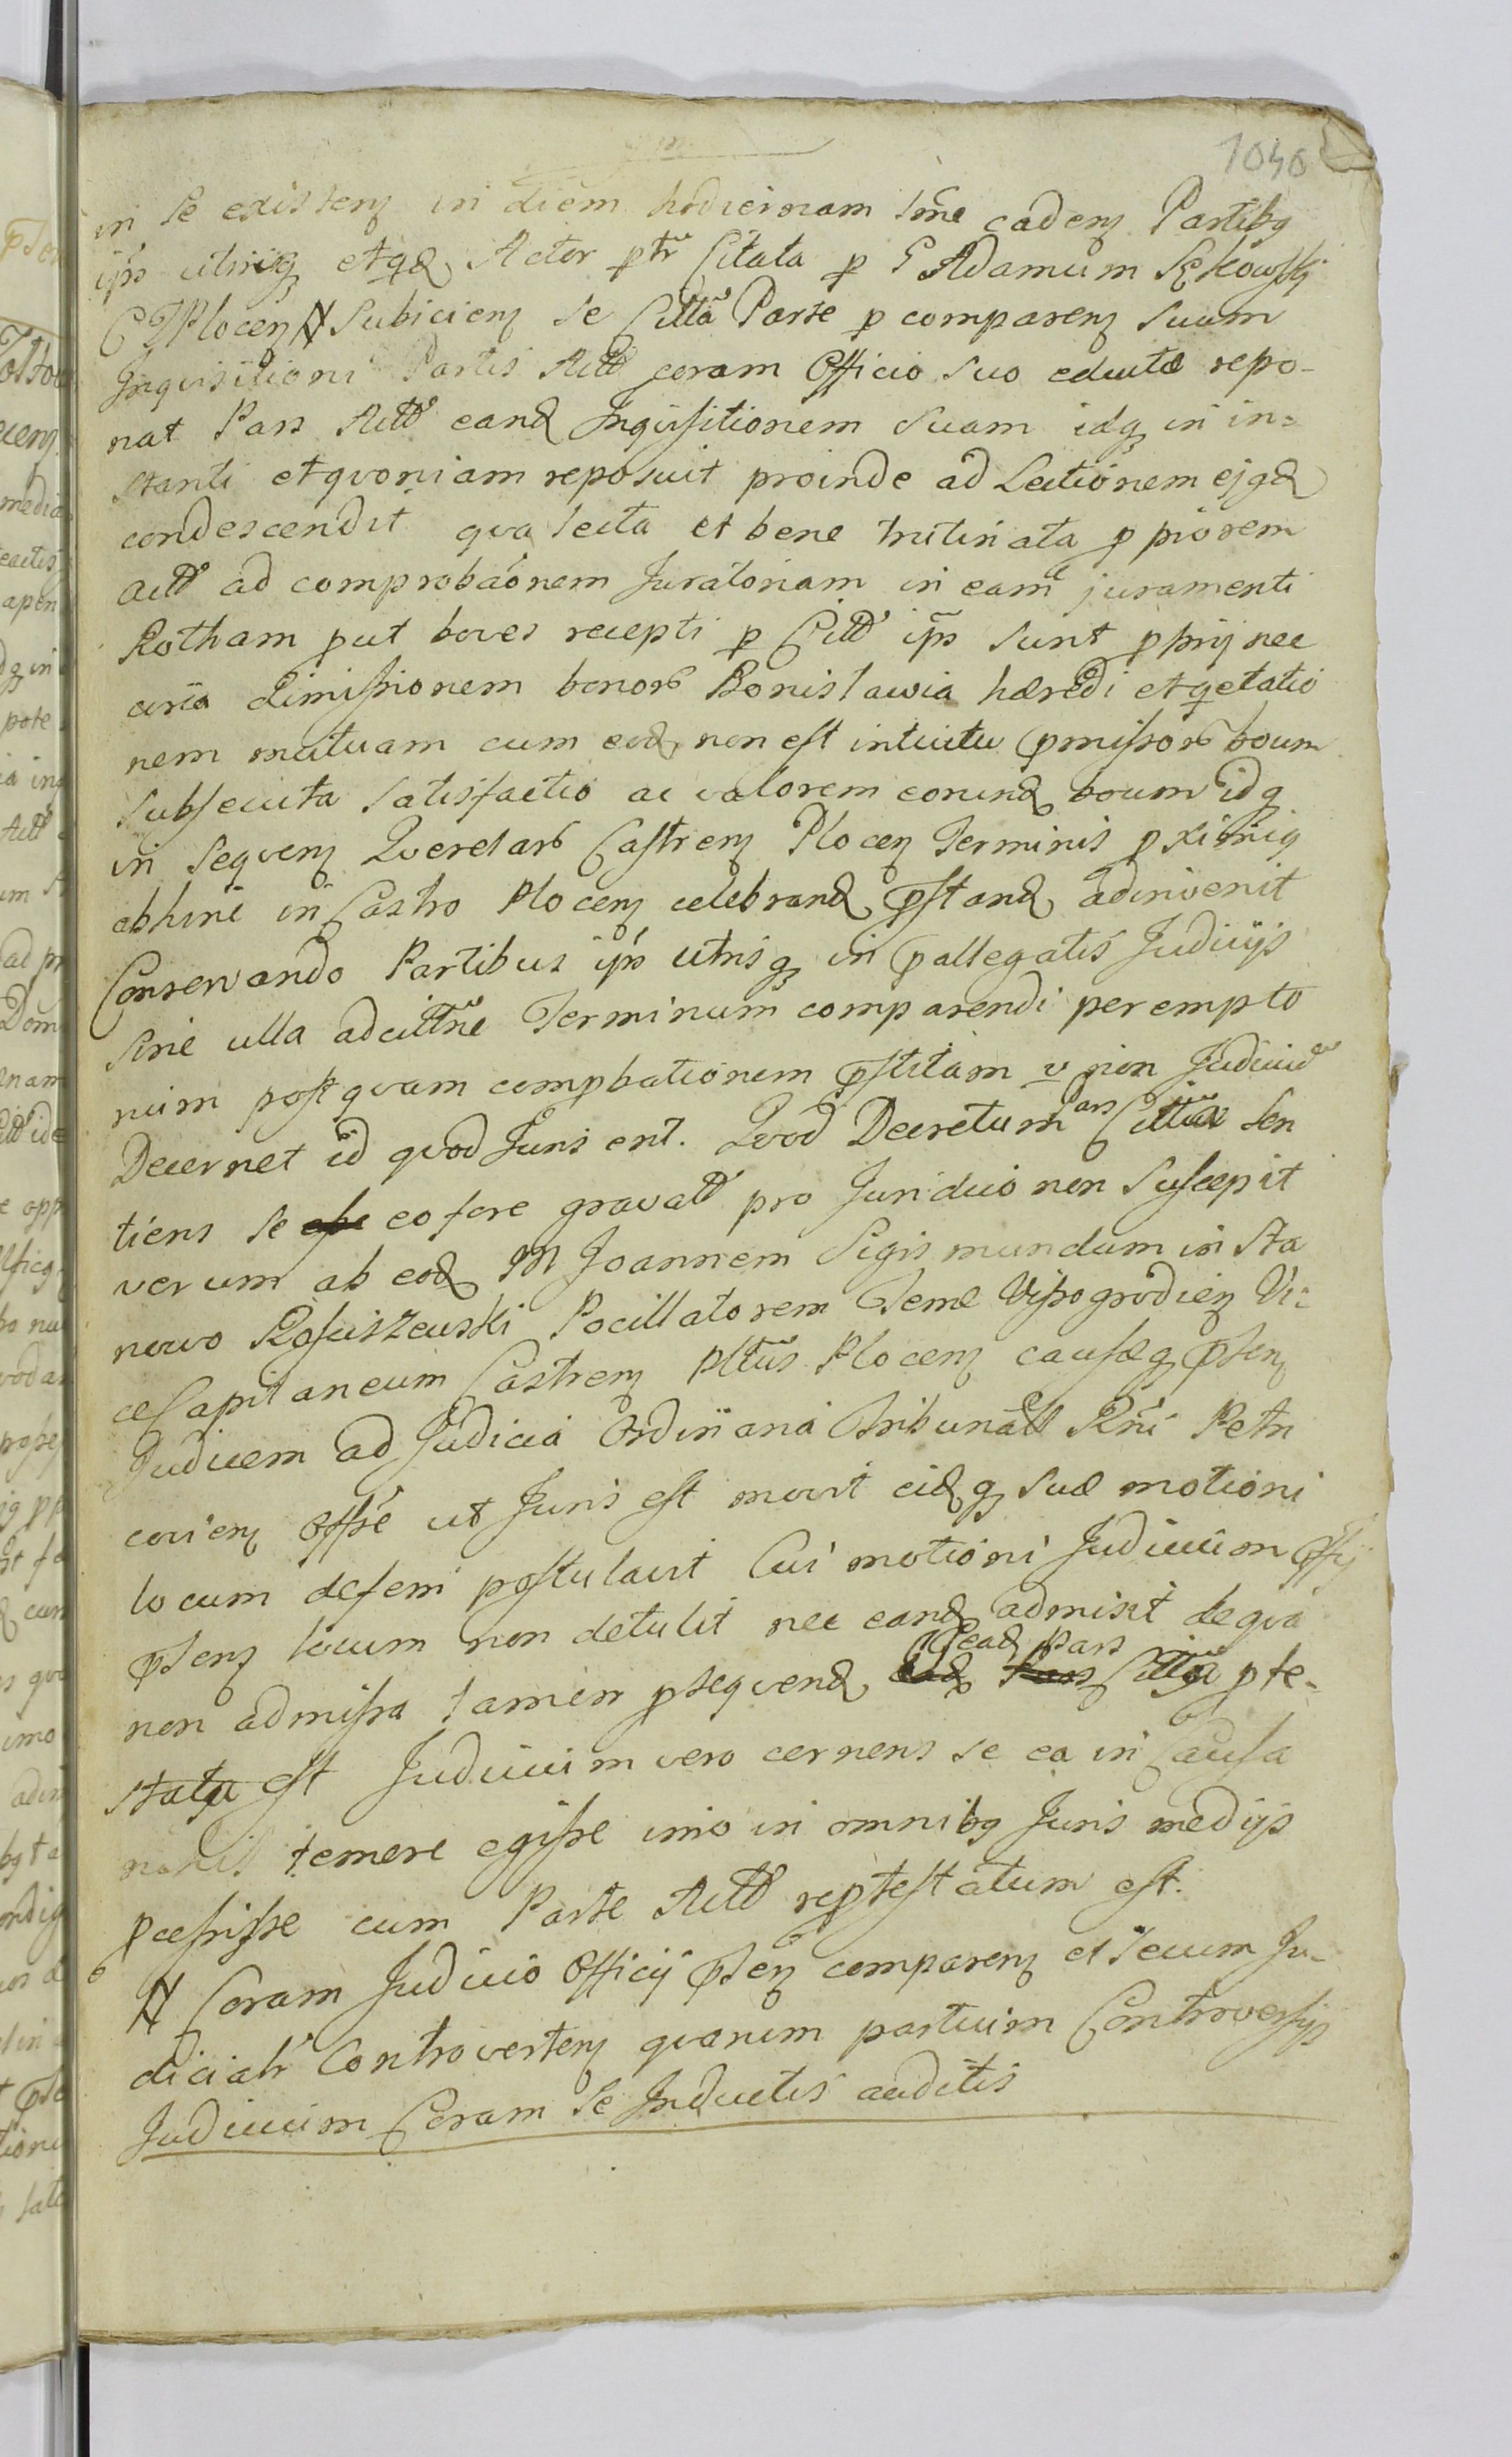 1040
in se existens in diem hodiernam tme cadens Partibus
ips utrisque etqd Actor ptr Citata p G Adamum Sękowski
C T Plocens # Subiciens se Citta Parte p comparens suum
Inquisitioni Partis Actt coram Officio suo eductæ repo-
nat Pars Actt eand Inquisitionem suam idq in in=
stanti et quoniam reposuit proinde ad Lectionem ejqd
condescendit qua lecta et bene trutinata p piorem
Actt ad comprobaonem Juratoriam in eam juramenti
Rotham put boves recepti p Citt ips sunt pprij nec
circa dimissionem bonor Bonislawia hæredi et qetatio
nem mutuam cum eod non est intuitu pmissor boum
subsecuta satisfactio ac valorem eorund boum idq
in sequens Querelar Castrens Plocens Terminis pximiq
abhinc in Castro Plocens celebrand pstand adinvenit
Conservando Partibus ips utrisq in pallegatis Judicijs
sine ulla adcittne Terminum comparendi perempto
rium post quam compbationem pstitam v non Judicium
Decernet id quod Juris erit. Quod Decretum Pars Citta sen
tiens se eo fore gravatt pro Juridico non suscepit
verum ab eod M Joannem Sigismundum in Sta
rowo Rościszewski Pocillatorem Terræ Wissogrodiens Vi=
ceCapitaneum Castrens Pltus Plocens causæq psens
Judicem ad Judicia Ordinaria Tribunalis Rni Petri
coviens offse ut Juris est movit eidq suæ motioni
locum deferri postulavit Cui motioni Judicium Offij
psens locum non detulit nec eand admisit de qua
non admissa tamen psequend ead Pars Citta pte-
stata est Judicium vero cernens se ea in Causa
nihil temere egisse imo in omnibus Juris medijs
pcessisse cum Parte Actt reptestatum est.
# Coram Judicio Officij psens comparens et secum Ju-
diciali Controvertens quarum partium Controversijs
Judicium Coram se Inductis auditis